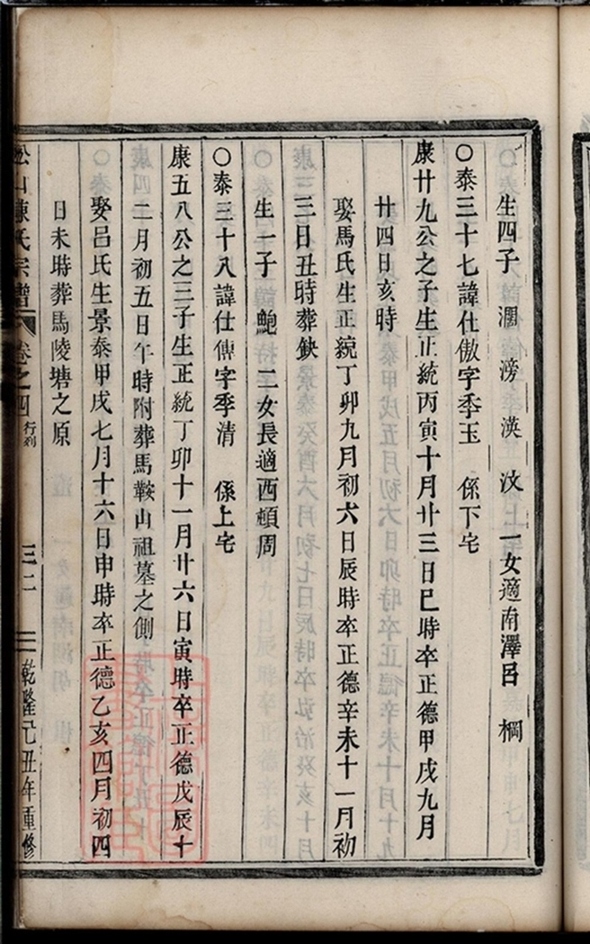 生四子 濶 滂 渶 汶 一女適南澤呂 橺
○泰三十七諱仕傲字季玉 係下宅
康廿九公之子生正統丙寅十月廿三日巳時卒正德甲戌九月
廿四日亥時
娶馬氏生正統丁卯九月初六日辰時卒正德辛未十一月初
三日丑時葬缺
生一子 鮑 二女長適西頓周
○泰三十八諱仕傳字季清 係上宅
康五八公之三子生正統丁卯十一月廿六日寅時卒正德戊辰十
二月初五日午時附葬馬鞍山祖墓之側
娶呂氏生景泰甲戌七月十六日申時卒正德乙亥四月初四
日未時葬馬陵塘之原
山陳氏宗譜 卷之四 行列 三二 乾隆 丑年重修